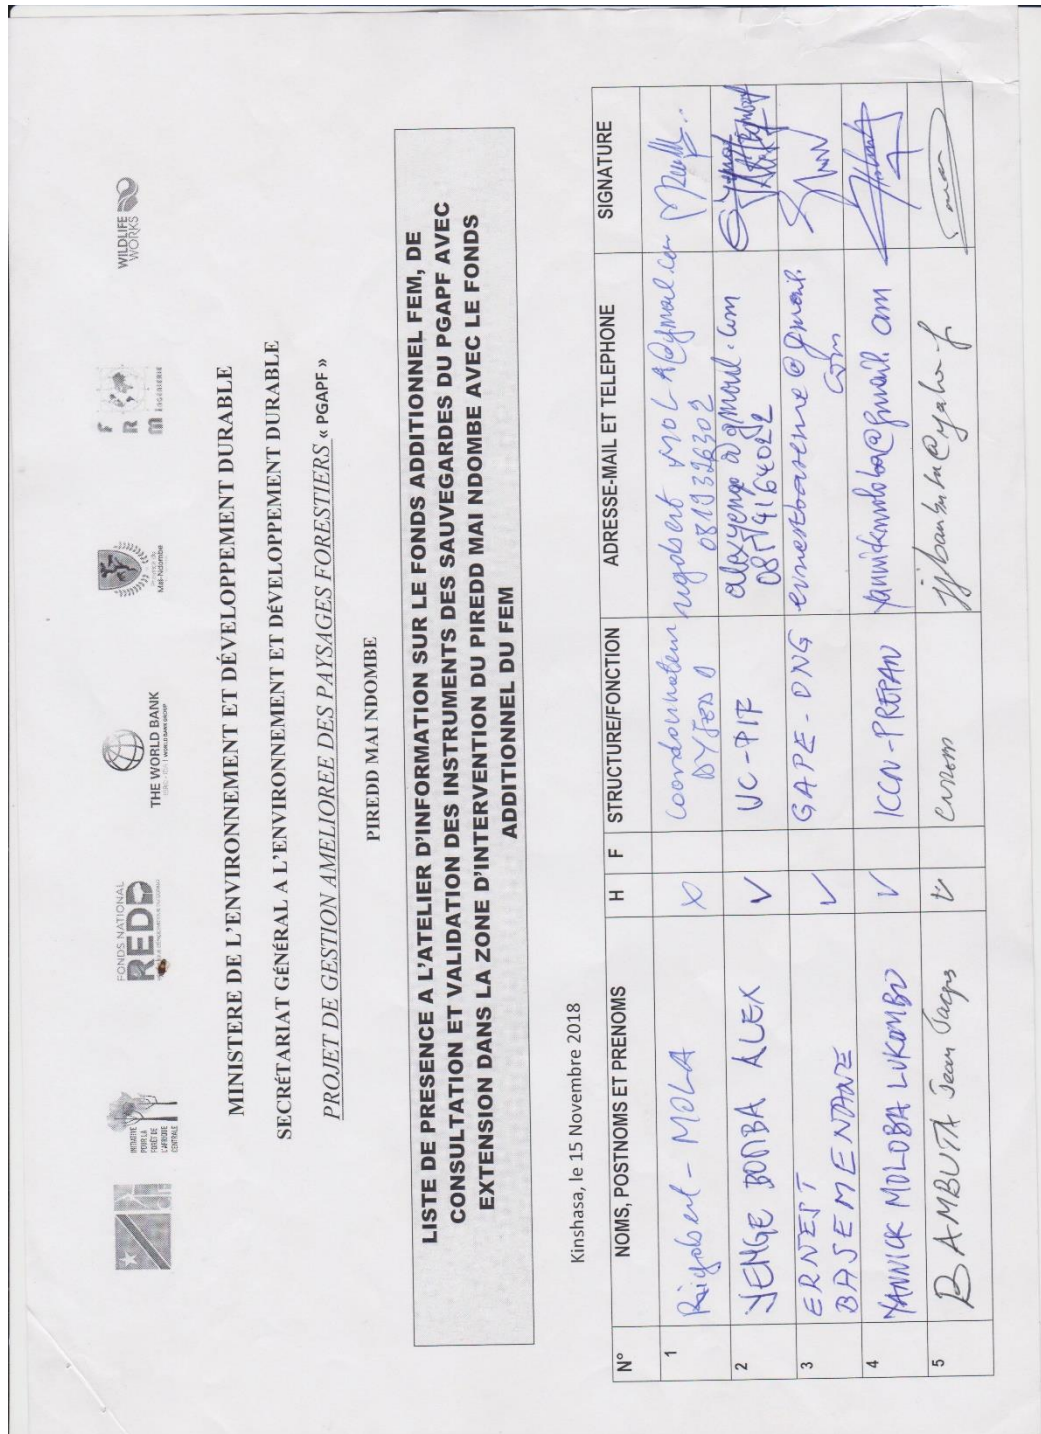 INITIATIVE
POUR LA
FORÊT DE
L'AFRIQUE
CENTRALE
FONDS NATIONAL
REDD
THE WORLD BANK
IBRD • IDA | WORLD BANK GROUP
Mai-Ndombe
F
R
M INGÉNIERIE
WILDLIFE
WORKS
MINISTERE DE L'ENVIRONNEMENT ET DÉVELOPPEMENT DURABLE
SECRÉTARIAT GÉNÉRAL A L'ENVIRONNEMENT ET DÉVELOPPEMENT DURABLE
PROJET DE GESTION AMELIOREE DES PAYSAGES FORESTIERS « PGAPF »
PIREDD MAI NDOMBE
LISTE DE PRESENCE A L'ATELIER D'INFORMATION SUR LE FONDS ADDITIONNEL FEM, DE
CONSULTATION ET VALIDATION DES INSTRUMENTS DES SAUVEGARDES DU PGAPF AVEC
EXTENSION DANS LA ZONE D'INTERVENTION DU PIREDD MAI NDOMBE AVEC LE FONDS
ADDITIONNEL DU FEM
Kinshasa, le 15 Novembre 2018
N° NOMS, POSTNOMS ET PRENOMS H F STRUCTURE/FONCTION ADRESSE-MAIL ET TELEPHONE SIGNATURE
1 Rigobert - MOLA X Coordonnateur
0819326302
2 YENGE BOMBA ALEX V UC-PIF
3 ERNEST
BASEMENTANE V GAPE-ONG ernestbaseme@gmail.
com
4 YANNICK MOLOBA LUKOMBO V ICCN-PREPAN yannickmoloba@gmail.com
5 BAMBUTA Jean Jacques